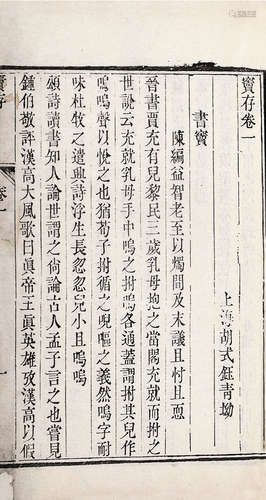 竇存卷一
上海胡式鈺青坳
書竇
陳編益智老至以燭間及末議且忖且恧
晉書賈充有兒黎民三歲乳母抱之當閤充就而拊之
世說云充就乳母手中嗚之拊嗚各適蓋謂拊其兒作
嗚嗚聲以悅之也猶荀子拊循之唲嘔之義然嗚字耐
味杜牧之遣興詩浮生長忽忽兒小且嗚嗚
頌詩讀書知人論世謂之尙論古人孟子言之也嘗見
鍾伯敬評漢高大風歌曰眞帝王眞英雄攷漢高以假
卷一